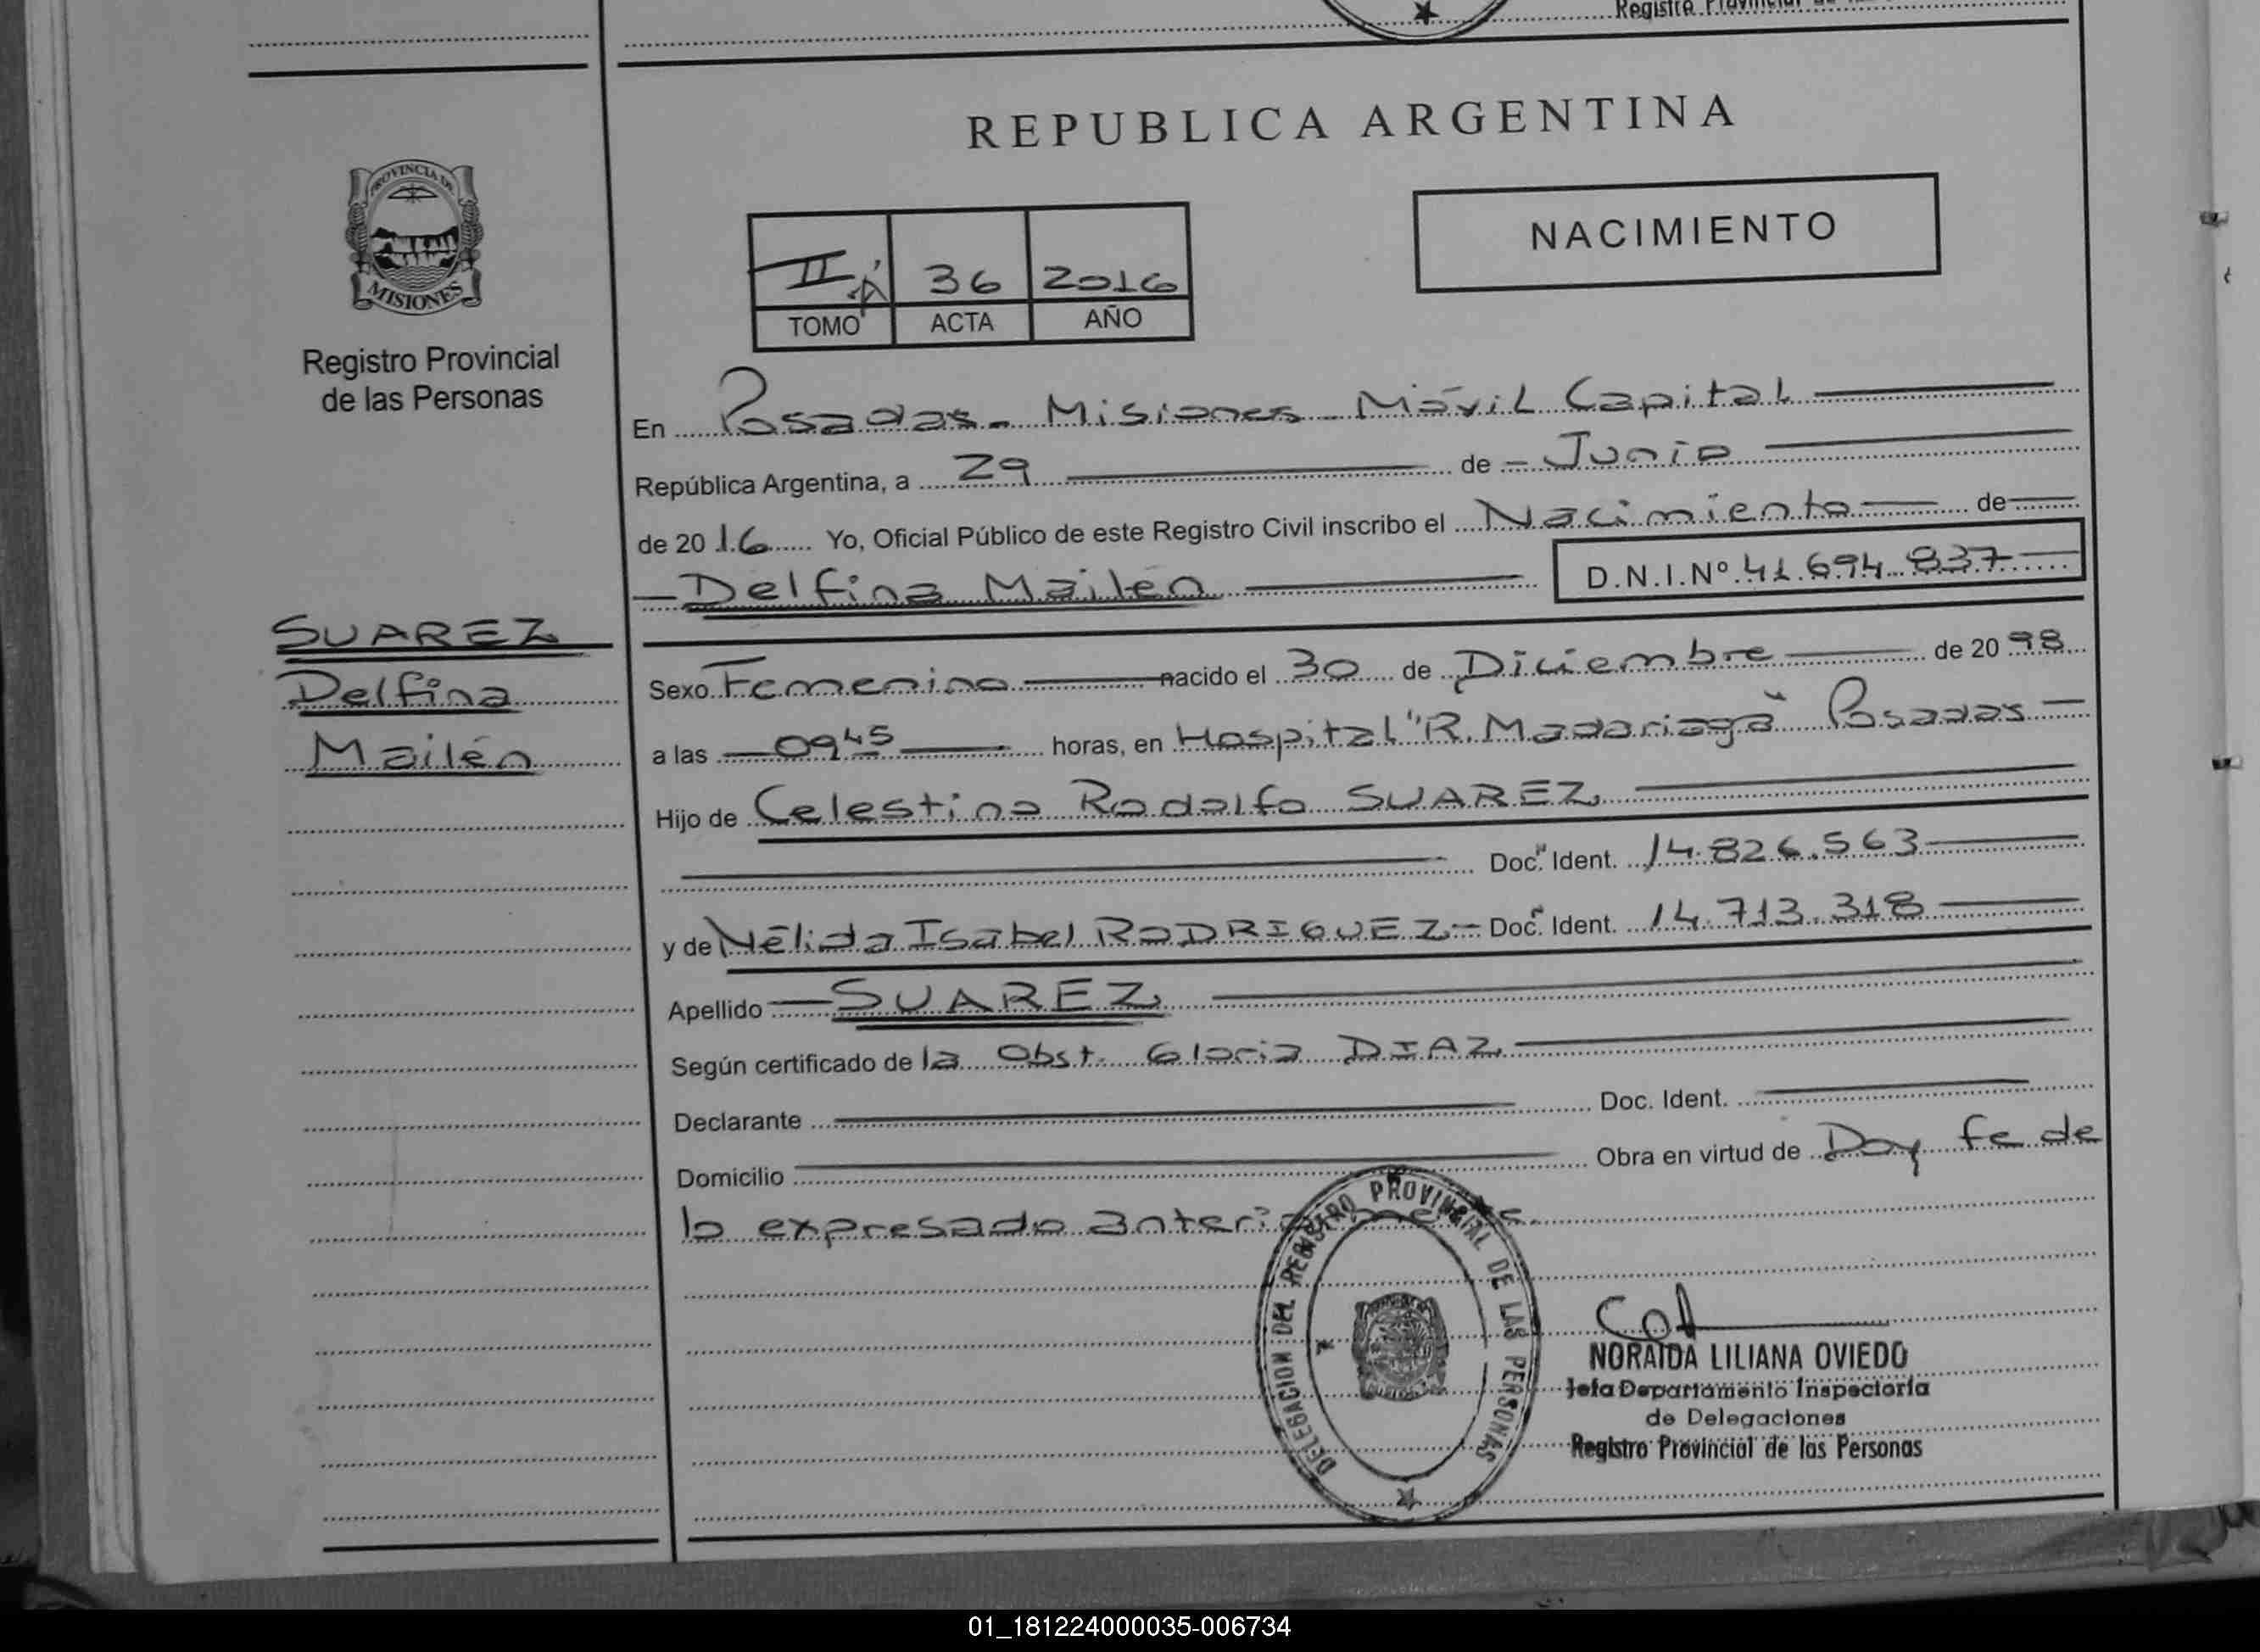 Registro Provincial de las
REPUBLICA ARGENTINA
PROVINCIA DE
MISIONES
Registro Provincial
de las Personas
NACIMIENTO
II A 36 2016
TOMO ACTA AÑO
En Posadas - Misiones - Móvil Capital
República Argentina, a 29 de Junio
de 2016 Yo, Oficial Público de este Registro Civil inscribo el Nacimiento de
Delfina Mailén D.N.I.Nº 41.694.837
SUAREZ
Delfina
Mailén
Sexo Femenino nacido el 30 de Diciembre de 20 98
a las 09 45 horas, en Hospital "R. Madariaga" Posadas
Hijo de Celestino Rodolfo SUAREZ
Doc. Ident. 14.826.563
y de Nélida Isabel RODRIGUEZ Doc. Ident. 14.713.318
Apellido SUAREZ
Según certificado de la Obst. Gloria DIAZ
Declarante Doc. Ident.
Domicilio Obra en virtud de Doy fe de
lo expresado anteriormente.
DELEGACION DEL REGISTRO PROVINCIAL DE LAS PERSONAS
NORAIDA LILIANA OVIEDO
Jefa Departamento Inspectoría
de Delegaciones
Registro Provincial de las Personas
01_181224000035-006734